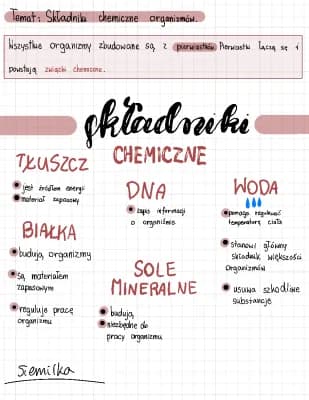 Temat: Składniki chemiczne organizmów.
Wszystkie organizmy zbudowane są z pierwiastków Pierwiastki łączą się i
powstają związki chemiczne.
składniki
CHEMICZNE
TŁUSZCZ
jest źródłem energii
materiał zapasowy
BIAŁKA
budują organizmy
są materiałem
zapasowym
reguluje pracę
organizmu
DNA
zapis informacji
o organizmie
SOLE
MINERALNE
budują,
niezbędne do
pracy organizmu
WODA
pomaga regulować
temperaturę ciała
stanowi główny
składnik większości
organizmów
usuwa szkodliwe
substancje
Siemilka